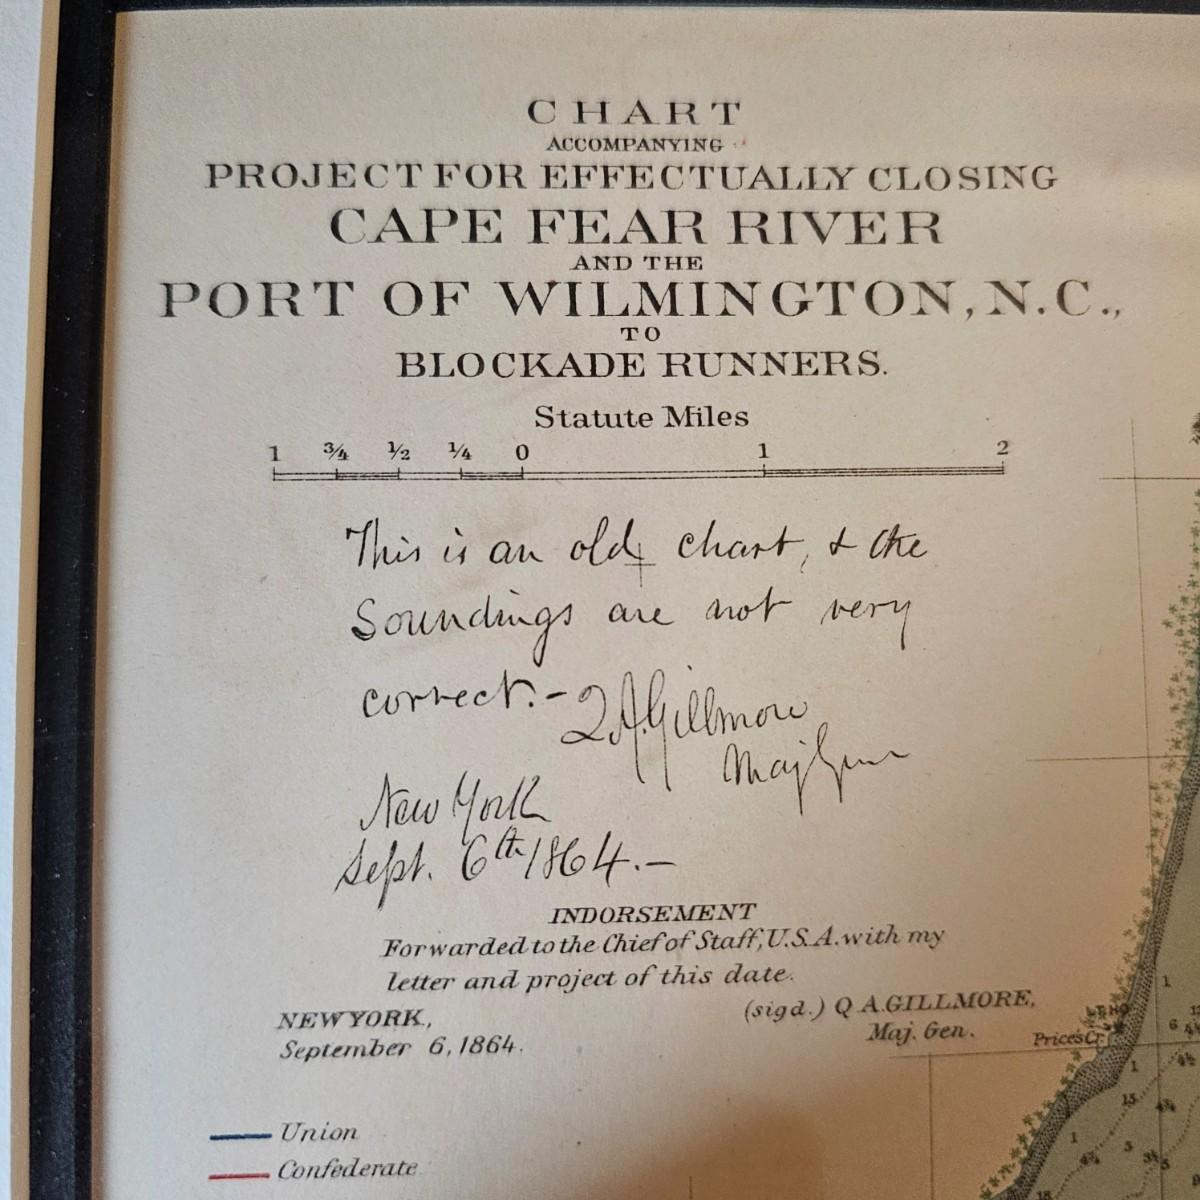 CHART
ACCOMPANYING
PROJECT FOR EFFECTUALLY CLOSING
CAPE FEAR RIVER
AND THE
PORT OF WILMINGTON, N.C.,
TO
BLOCKADE RUNNERS.
Statute Miles
1 ¾ ½ ¼ 0 1 2
This is an old chart, & the
Soundings are not very
correct. - Q A. Gillmore
Maj Gen
New York
Sept. 6th 1864. -
INDORSEMENT
Forwarded to the Chief of Staff, U.S.A. with my
letter and project of this date.
NEW YORK,
September 6, 1864.
(sigd.) Q A. GILLMORE,
Maj. Gen.
Prices Cr.
Union
Confederate
1
6
1
15
1